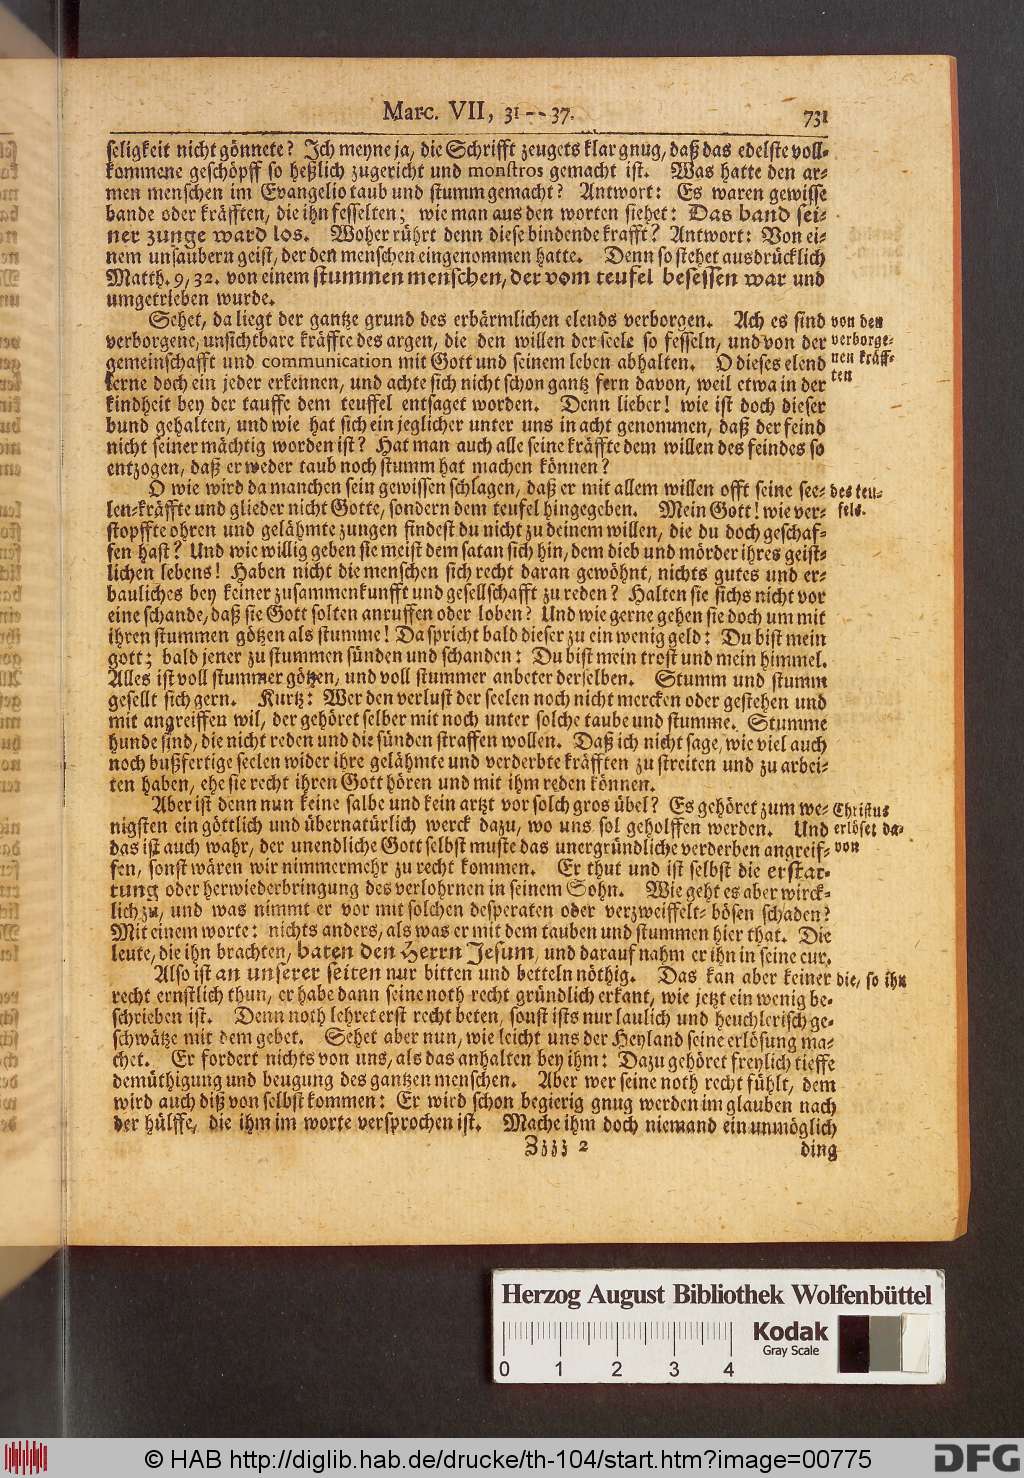 Marc. VII, 31--37.
731
seligkeit nicht gönnete? Ich meyne ja, die Schrifft zeugets klar gnug, daß das edelste voll-
kommene geschöpff so heßlich zugericht und monstros gemacht ist. Was hatte den ar-
men menschen im Evangelio taub und stumm gemacht? Antwort: Es waren gewisse
bande oder kräfften, die ihn fesselten; wie man aus den worten siehet: Das band sei-
ner zunge ward los. Woher rührt denn diese bindende krafft? Antwort: Von ei-
nem unsaubern geist, der den menschen eingenommen hatte. Denn so stehet ausdrücklich
Matth. 9, 32. von einem stummen menschen, der vom teufel besessen war und
umgetrieben wurde.
Sehet, da liegt der gantze grund des erbärmlichen elends verborgen. Ach es sind
verborgene, unsichtbare kräffte des argen, die den willen der seele so fesseln, und von der
gemeinschafft und communication mit Gott und seinem leben abhalten. O dieses elend
lerne doch ein jeder erkennen, und achte sich nicht schon gantz fern davon, weil etwa in der
kindheit bey der tauffe dem teuffel entsaget worden. Denn lieber! wie ist doch dieser
bund gehalten, und wie hat sich ein jeglicher unter uns in acht genommen, daß der feind
nicht seiner mächtig worden ist? Hat man auch alle seine kräffte dem willen des feindes so
entzogen, daß er weder taub noch stumm hat machen können?
von den
verborge-
nen kräff-
ten
O wie wird da manchen sein gewissen schlagen, daß er mit allem willen offt seine see-
len-kräffte und glieder nicht Gotte, sondern dem teufel hingegeben. Mein Gott! wie ver-
stopffte ohren und gelähmte zungen findest du nicht zu deinem willen, die du doch geschaf-
fen hast? Und wie willig geben sie meist dem satan sich hin, dem dieb und mörder ihres geist-
lichen lebens! Haben nicht die menschen sich recht daran gewöhnt, nichts gutes und er-
bauliches bey keiner zusammenkunfft und gesellschafft zu reden? Halten sie sichs nicht vor
eine schande, daß sie Gott solten anruffen oder loben? Und wie gerne gehen sie doch um mit
ihren stummen götzen als stumme! Da spricht bald dieser zu ein wenig geld: Du bist mein
gott; bald jener zu stummen sünden und schanden: Du bist mein trost und mein himmel.
Alles ist voll stummer götzen, und voll stummer anbeter derselben. Stumm und stumm
gesellt sich gern. Kurtz: Wer den verlust der seelen noch nicht mercken oder gestehen und
mit angreiffen wil, der gehöret selber mit noch unter solche taube und stumme. Stumme
hunde sind, die nicht reden und die sünden straffen wollen. Daß ich nicht sage, wie viel auch
noch bußfertige seelen wider ihre gelähmte und verderbte kräfften zu streiten und zu arbei-
ten haben, ehe sie recht ihren Gott hören und mit ihm reden können.
des teu-
fels.
Aber ist denn nun keine salbe und kein artzt vor solch gros übel? Es gehöret zum we-
nigsten ein göttlich und übernatürlich werck dazu, wo uns sol geholffen werden. Und
das ist auch wahr, der unendliche Gott selbst muste das unergründliche verderben angreif-
fen, sonst wären wir nimmermehr zu recht kommen. Er thut und ist selbst die erstat-
tung oder herwiederbringung des verlohrnen in seinem Sohn. Wie geht es aber wirck-
lich zu, und was nimmt er vor mit solchen desperaten oder verzweiffelt-bösen schaden?
Mit einem worte: nichts anders, als was er mit dem tauben und stummen hier that. Die
leute, die ihn brachten, baten den Herrn Jesum, und darauf nahm er ihn in seine cur.
Christus
erlöset da-
von
Also ist an unserer seiten nur bitten und betteln nöthig. Das kan aber keiner
recht ernstlich thun, er habe dann seine noth recht gründlich erkant, wie jetzt ein wenig be-
schrieben ist. Denn noth lehret erst recht beten, sonst ists nur laulich und heuchlerisch ge-
schwätze mit dem gebet. Sehet aber nun, wie leicht uns der Heyland seine erlösung ma-
chet. Er fordert nichts von uns, als das anhalten bey ihm: Dazu gehöret freylich tieffe
demüthigung und beugung des gantzen menschen. Aber wer seine noth recht fühlt, dem
wird auch diß von selbst kommen: Er wird schon begierig gnug werden im glauben nach
der hülffe, die ihm im worte versprochen ist. Mache ihm doch niemand ein unmöglich
die, so ihn
Zzzz 2
ding
Herzog August Bibliothek Wolfenbüttel
Kodak
Gray Scale
0 1 2 3 4
© HAB http://diglib.hab.de/drucke/th-104/start.htm?image=00775
DFG